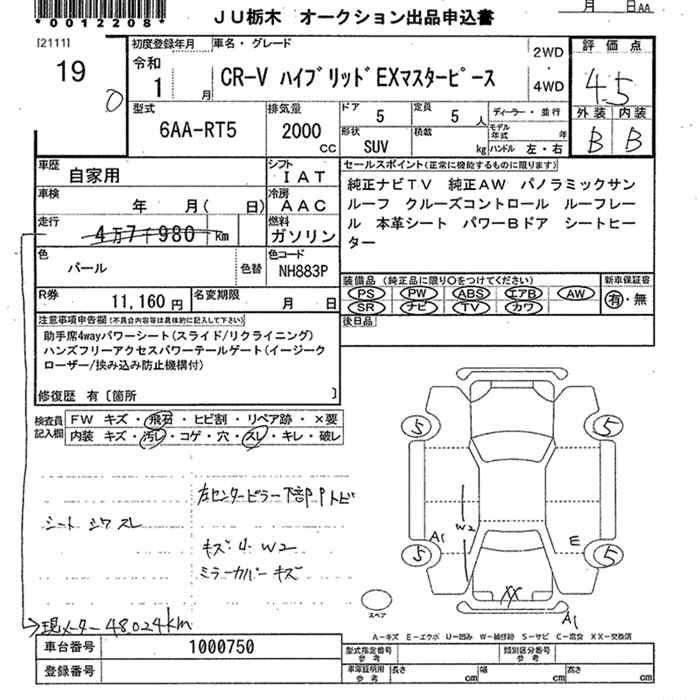 *0012208*
JU栃木 オークション出品申込書
月 日AA
[2111]
19
0
初度登録年月
令和
1 月
車名・グレード
CR-V ハイブリッドEXマスターピース
2WD
・
4WD
評価点
4.5
外装 内装
B B
型式
6AA-RT5
排気量
2000
cc
ドア
5
定員
5 人
ディーラー・並行
形状
SUV
積載
kg
モデル年式 年
ハンドル 左・右
車歴
自家用
シフト
IAT
車検
年 月( 日)
冷房
AAC
走行
4万7千980 Km
燃料
ガソリン
色
パール
色替
色コード
NH883P
R券
11,160 円
名変期限
月 日
セールスポイント(正常に機能するものに限ります)
純正ナビTV 純正AW パノラミックサン
ルーフ クルーズコントロール ルーフレー
ル 本革シート パワーBドア シートヒー
ター
装備品(純正品に限り○をつけてください)
PS PW ABS エアB AW
SR ナビ TV カワ
新車保証書
有・無
後日品
注意事項申告欄(不具合内容等は具体的に記入して下さい)
助手席4wayパワーシート(スライド/リクライニング)
ハンズフリーアクセスパワーテールゲート(イージーク
ローザー/挟み込み防止機構付)
修復歴 有〔箇所 〕
検査員記入欄
FW キズ・飛石・ヒビ割・リペア跡・×要
内装 キズ・汚レ・コゲ・穴・スレ・キレ・破レ
左センターピラー下部Pトビ
シート シワ スレ
キズ・U・W2
ミラーカバー キズ
→現メーター 48024km
5
5
5
5
W2
A1
E
XX
A1
スペア
A−キズ E−エクボ U−凹み W−補修跡 S−サビ C−腐食 XX−交換済
車台番号 1000750
登録番号
型式指定番号参考
類別区分番号参考
車庫証明用参考
長さ cm
幅 cm
高さ cm